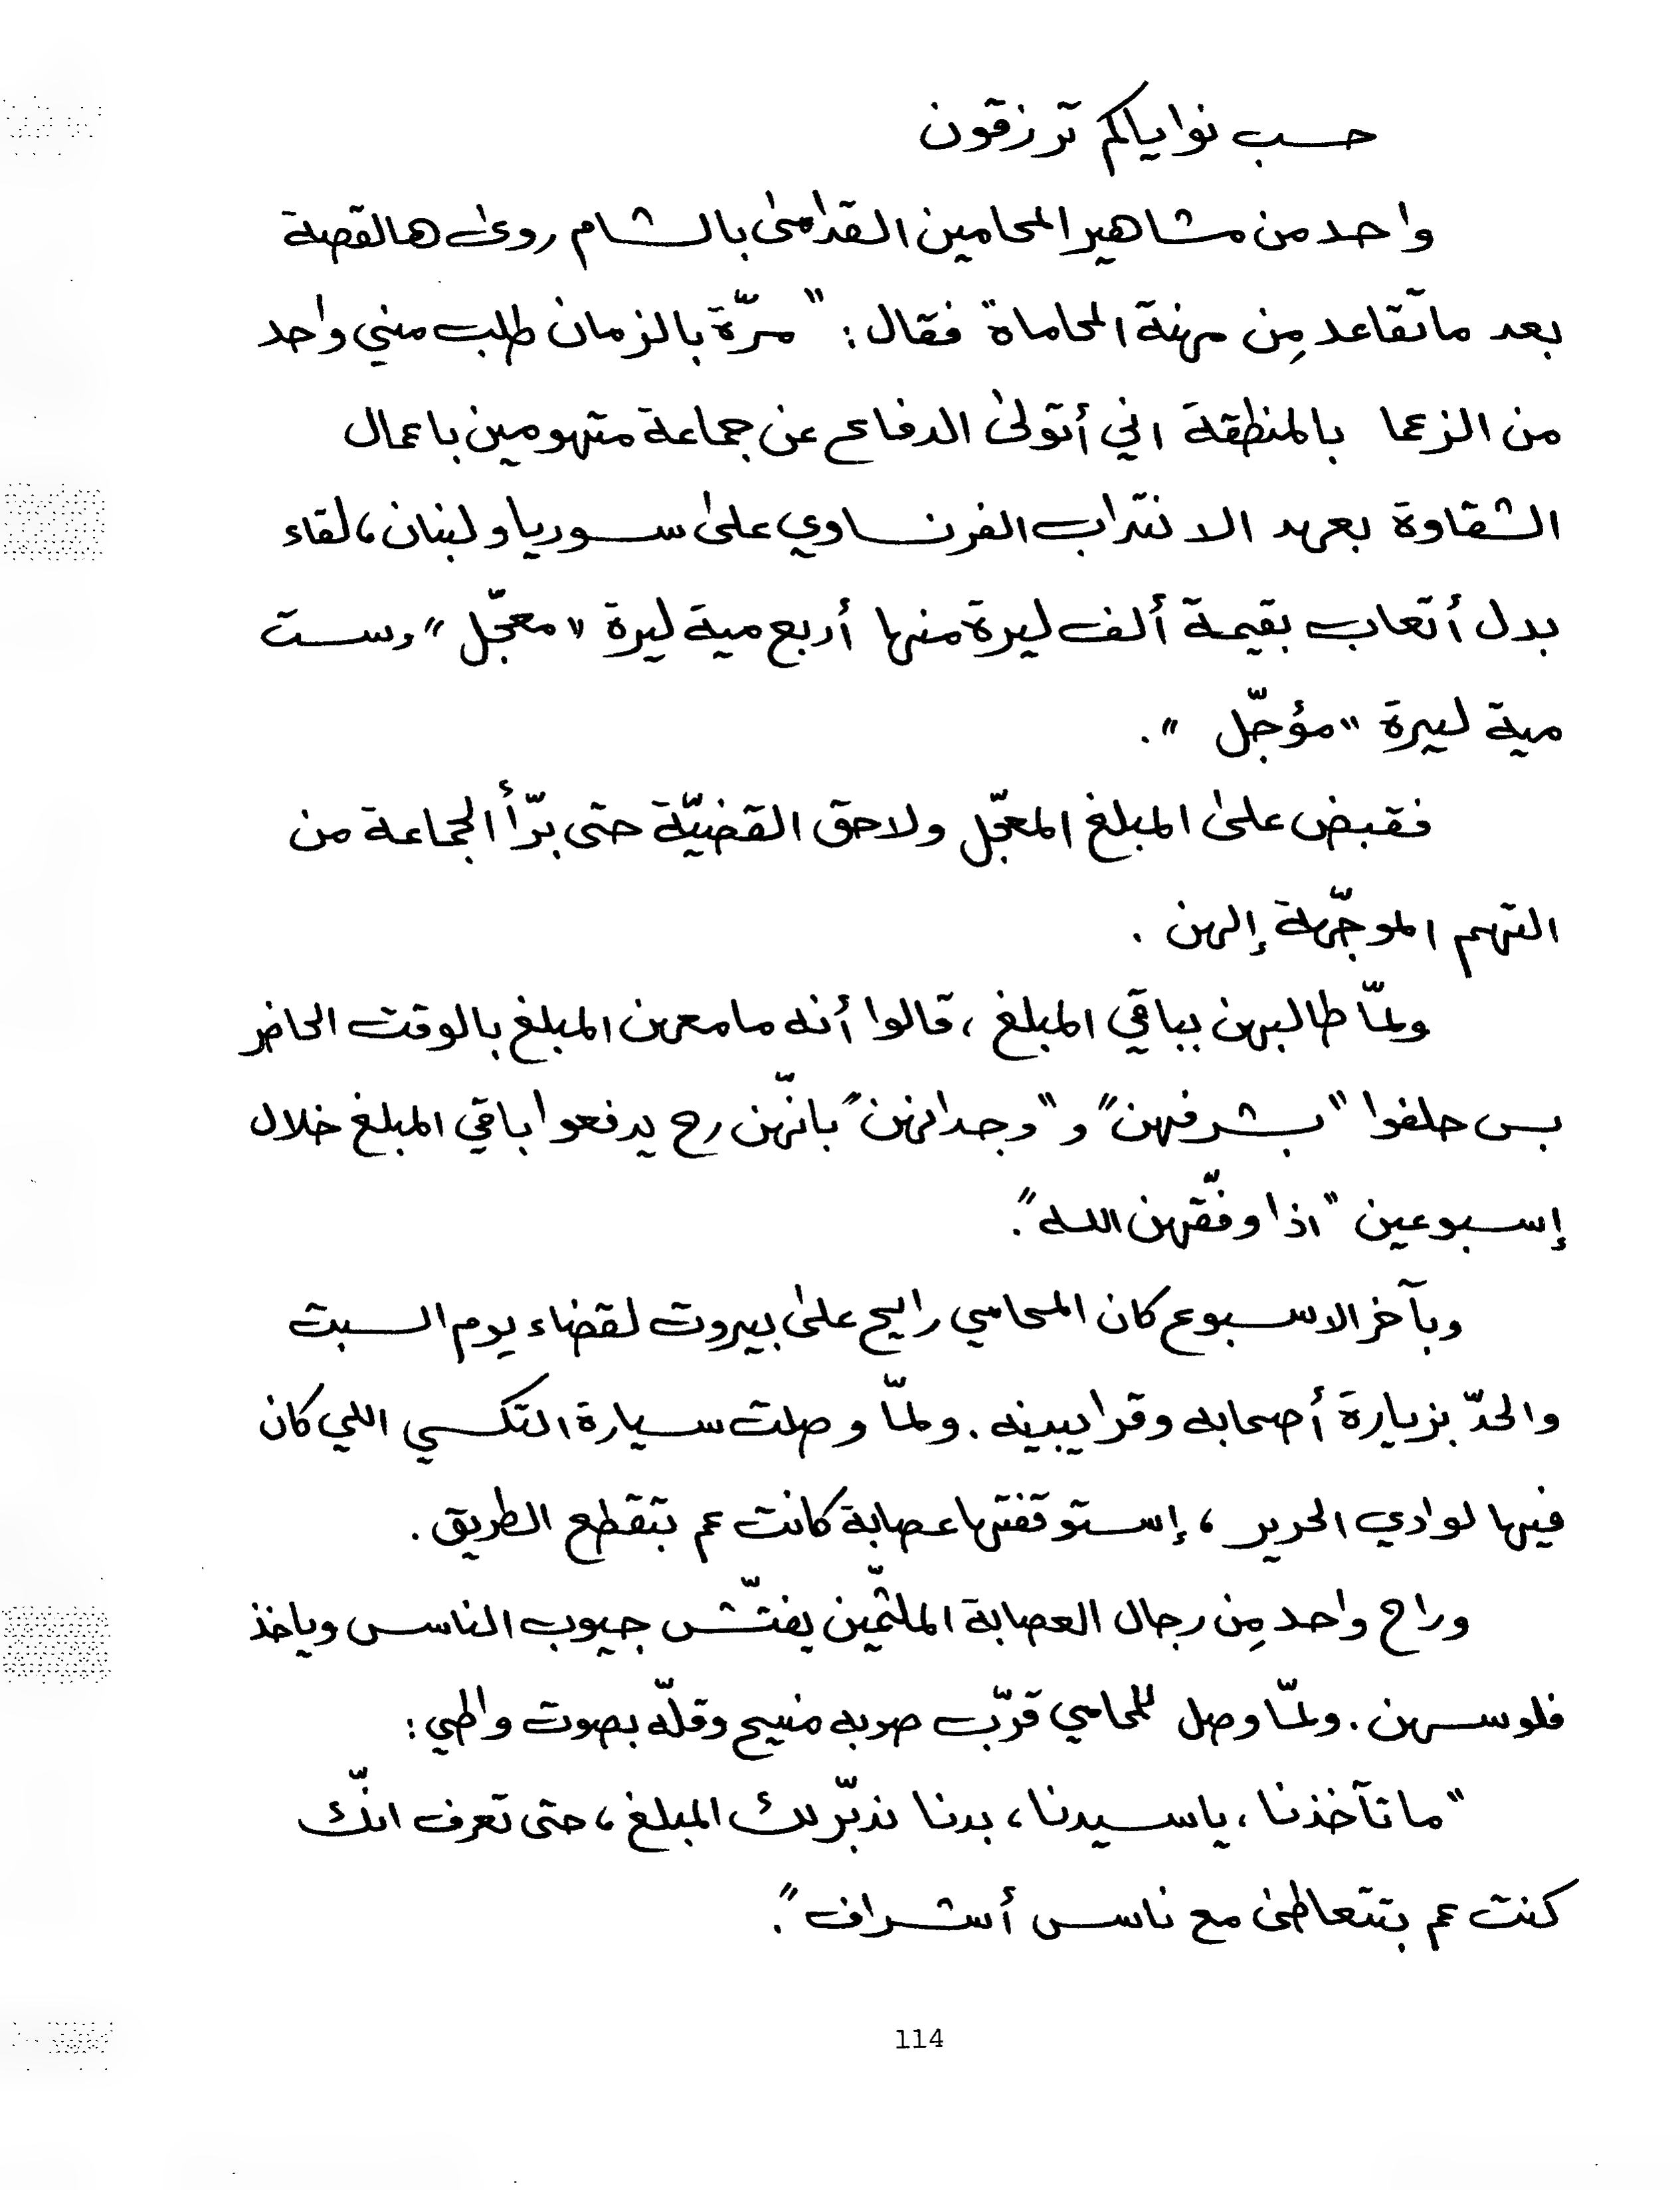 حسب نواياكم ترزقون
واحد من مشاهير المحامين القدامىٰ بالشام روىٰ هالقصة
بعد ما تقاعد مِن مهنة المحاماة فقال: "مرّة بالزمان طلب مني واحد
من الزعما بالمنطقة اني أتولىٰ الدفاع عن جماعة متهومين باعمال
الشقاوة بعهد الانتداب الفرنساوي علىٰ سوريا ولبنان، لقاء
بدل أتعاب بقيمة ألف ليرة منها أربع مية ليرة "معجّل" وست
مية ليرة "مؤجّل".
فقبض علىٰ المبلغ المعجّل ولاحق القضيّة حتى برّأ الجماعة من
التهم الموجّهة إلهن.
ولمّا طالبهن بباقي المبلغ، قالوا أنه ما معهن المبلغ بالوقت الحاضر
بس حلفوا "بشرفهن" و"وجدانهن" بانّهن رح يدفعوا باقي المبلغ خلال
إسبوعين "اذا وفّقهن الله".
وبآخر الاسبوع كان المحامي رايح علىٰ بيروت لقضاء يوم السبت
والحدّ بزيارة أصحابه وقرايبينه. ولمّا وصلت سيارة التكسي اللي كان
فيها لوادي الحرير، إستوقفتها عصابة كانت عم بتقطع الطريق.
وراح واحد مِن رجال العصابة الملثّمين يفتّش جيوب الناس وياخذ
فلوسهن. ولمّا وصل للمحامي قرّب صوبه منيح وقلّه بصوت واطي:
"ما تآخذنا، يا سيدنا، بدنا ندبّر لك المبلغ، حتى تعرف انّك
كنت عم بتتعاطىٰ مع ناس أشراف".
114